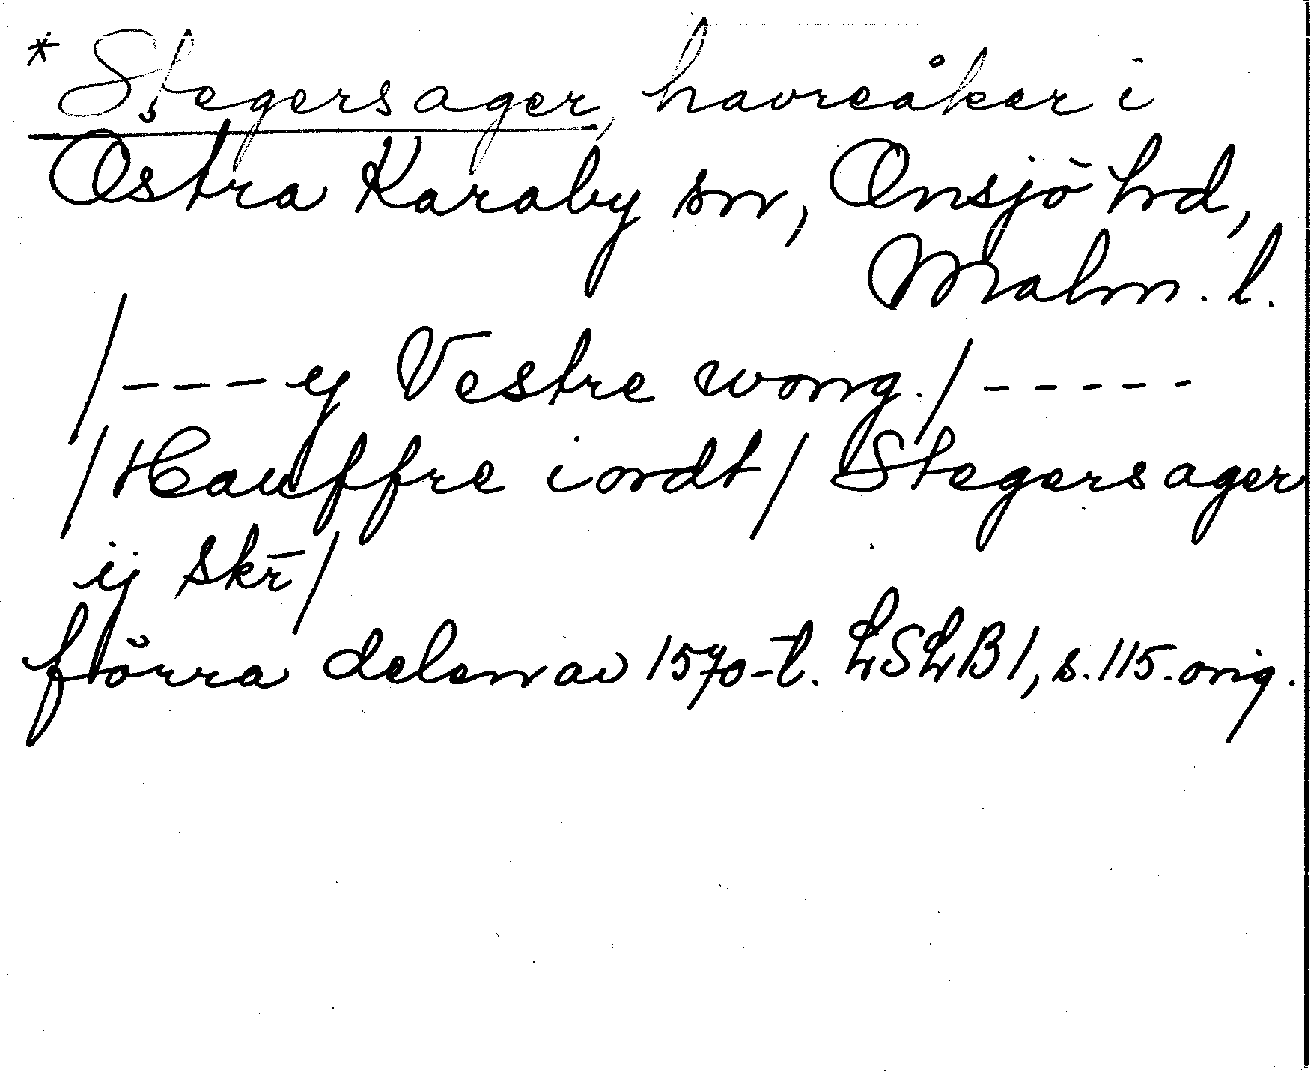 * Stegersager, havreåker i
Östra Karaby sn, Onsjö hd,
Malm. l.
/---ij Vestre wong./-----
/Hauffre iordt/ Stegersager
ij skr̄/
förra delen av 1570-t. LSLB 1, s. 115. orig.